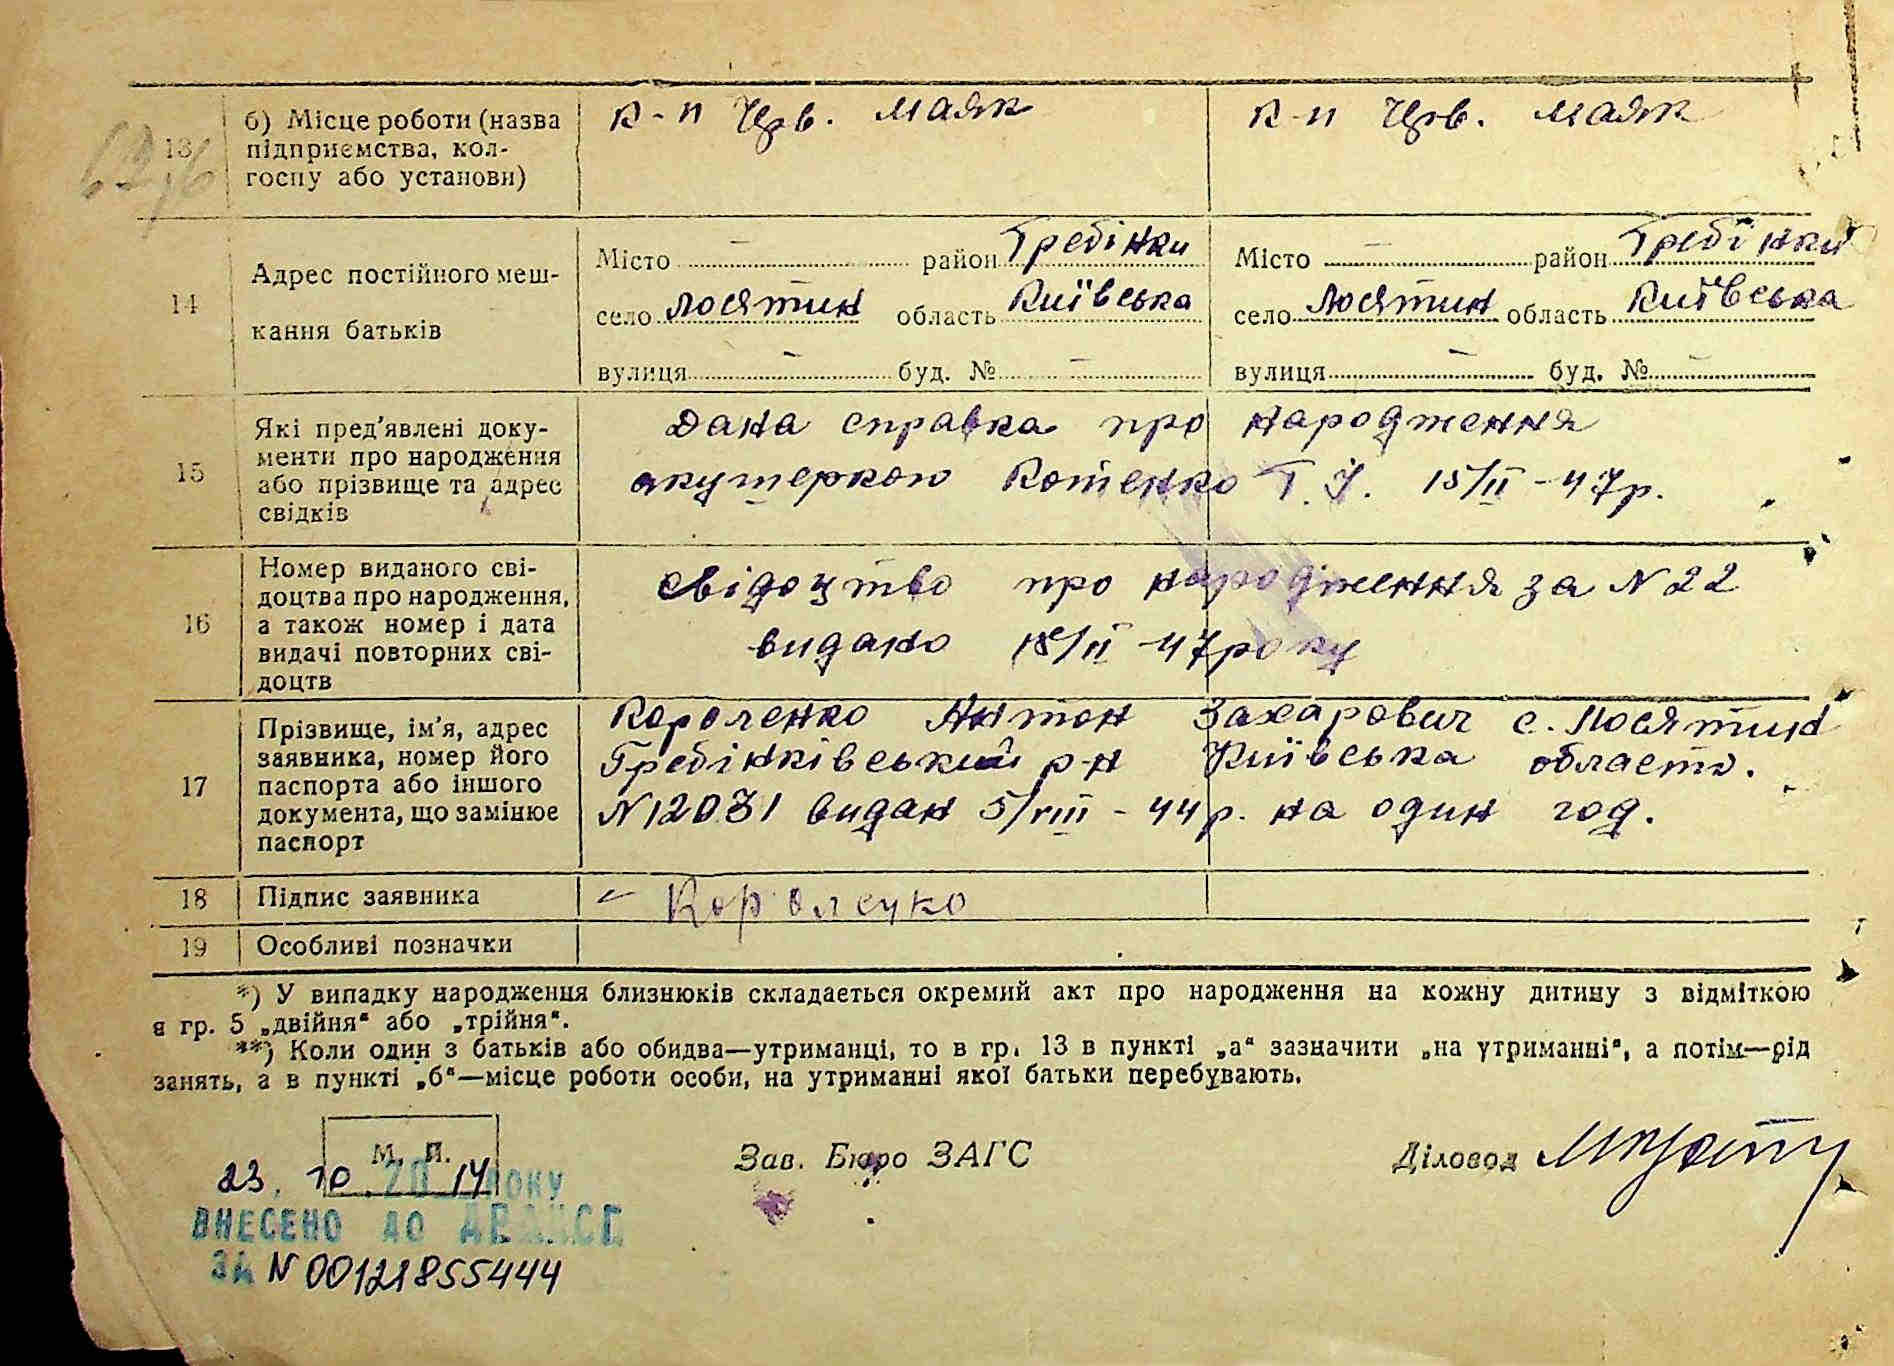 13 б) Місце роботи (назва підприємства, колгоспу або установи)
к-п Чрв. маяк к-п Чрв. маяк
14 Адрес постійного мешкання батьків
Місто — район Гребінки Місто — район Гребінки
село Лосятин область Київська село Лосятин область Київська
вулиця — буд. № — вулиця — буд. № —
15 Які пред'явлені документи про народження або прізвище та адрес свідків
Дана справка про народження
акушеркою Котенко Т. І. 15/II-47р.
16 Номер виданого свідоцтва про народження, а також номер і дата видачі повторних свідоцтв
свідоцтво про народження за N 22
видано 18/II-47 року
17 Прізвище, ім'я, адрес заявника, номер його паспорта або іншого документа, що замінює паспорт
Короленко Антон Захарович с. Лосятин
Гребінківський р-н Київська область.
N 12031 видан 5/VIII-44р. на один год.
18 Підпис заявника Короленко
19 Особливі позначки
*) У випадку народження близнюків складається окремий акт про народження на кожну дитину з відміткою
в гр. 5 „двійня“ або „трійня“.
**) Коли один з батьків або обидва—утриманці, то в гр. 13 в пункті „а“ зазначити „на утриманні“, а потім—рід
занять, а в пункті „б“—місце роботи особи, на утриманні якої батьки перебувають.
М. П.
Зав. Бюро ЗАГС Діловод
23. 10 20 14 РОКУ
ВНЕСЕНО ДО ДРАЦСГ
ЗА N 00121855444